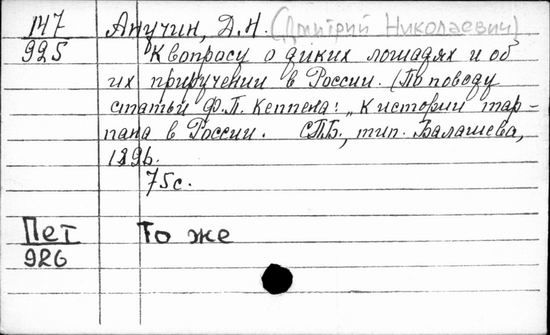 147 Анучин, Д.Н. (Дмитрий Николаевич)
925 К вопросу о диких лошадях и об
их приручении в России. (По поводу
статьи Ф.П. Кеппена: „К истории тар-
пана в России. СПБ, тип. Балашева,
1896.
75с.
Пет То же
926